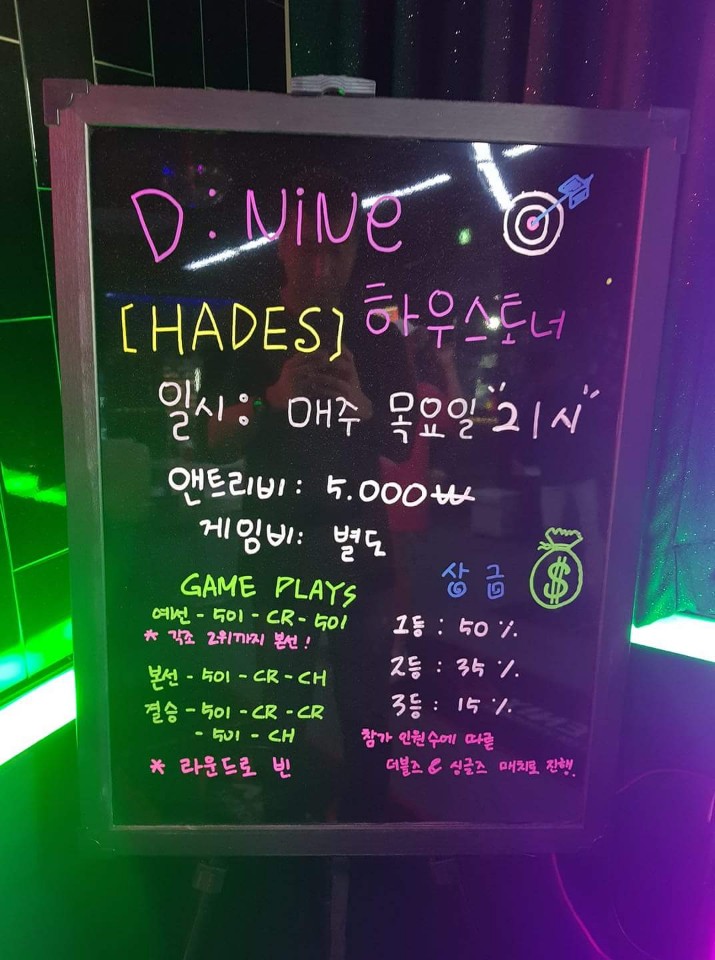 D:NiNe
[HADES] 하우스토너
일시: 매주 목요일 "21시"
앤트리비: 5.000₩
게임비: 별도
GAME PLAYS
예선 - 501 - CR - 501
* 각조 2위까지 본선!
본선 - 501 - CR - CH
결승 - 501 - CR - CR
- 501 - CH
* 라운드로 빈
상금 $
1등 : 50 %.
2등 : 35 %.
3등 : 15 %.
참가 인원수에 따를
더블즈 & 싱글즈 매치로 진행.